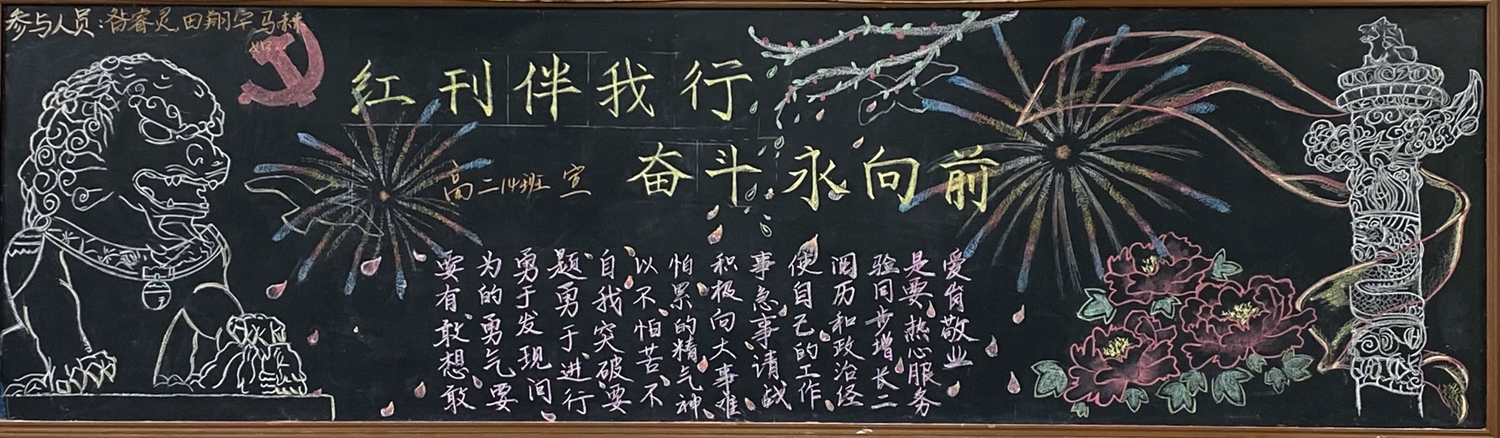 参与人员：昝睿灵 田翔宇 马赫
红刊伴我行
奋斗永向前
高二14班 宣
要有敢想敢
为的勇气要
勇于发现问
题勇于进行
自我突破要
以不怕苦不
怕累的精气神
积极向大事难
事急事请战
使自己的工作
阅历和政治经
验同步增长二
是要热心服务
爱岗敬业